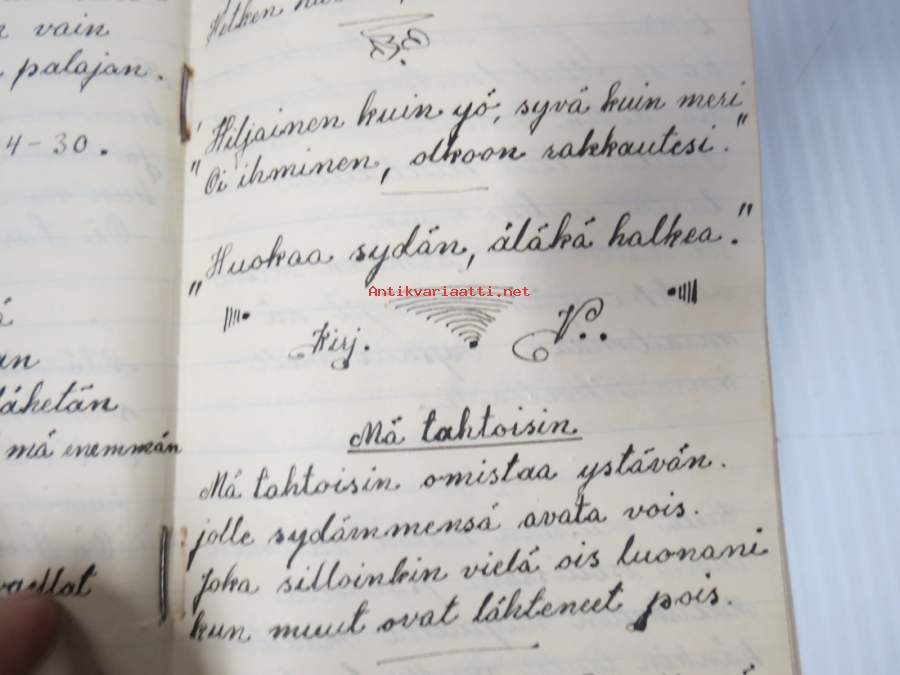 vain
palajan.
4-30.
lähetän
mä enemmän
"Hiljainen kuin yö, syvä kuin meri
"Oi ihminen, olkoon rakkautesi."
"Huokaa sydän, äläkä halkea."
Antikvariaatti.net
Kirj. V..
Mä tahtoisin.
Mä tahtoisin omistaa ystävän.
jolle sydämmensä avata vois.
Joka silloinkin vielä ois luonani
kun muut ovat lähteneet pois.